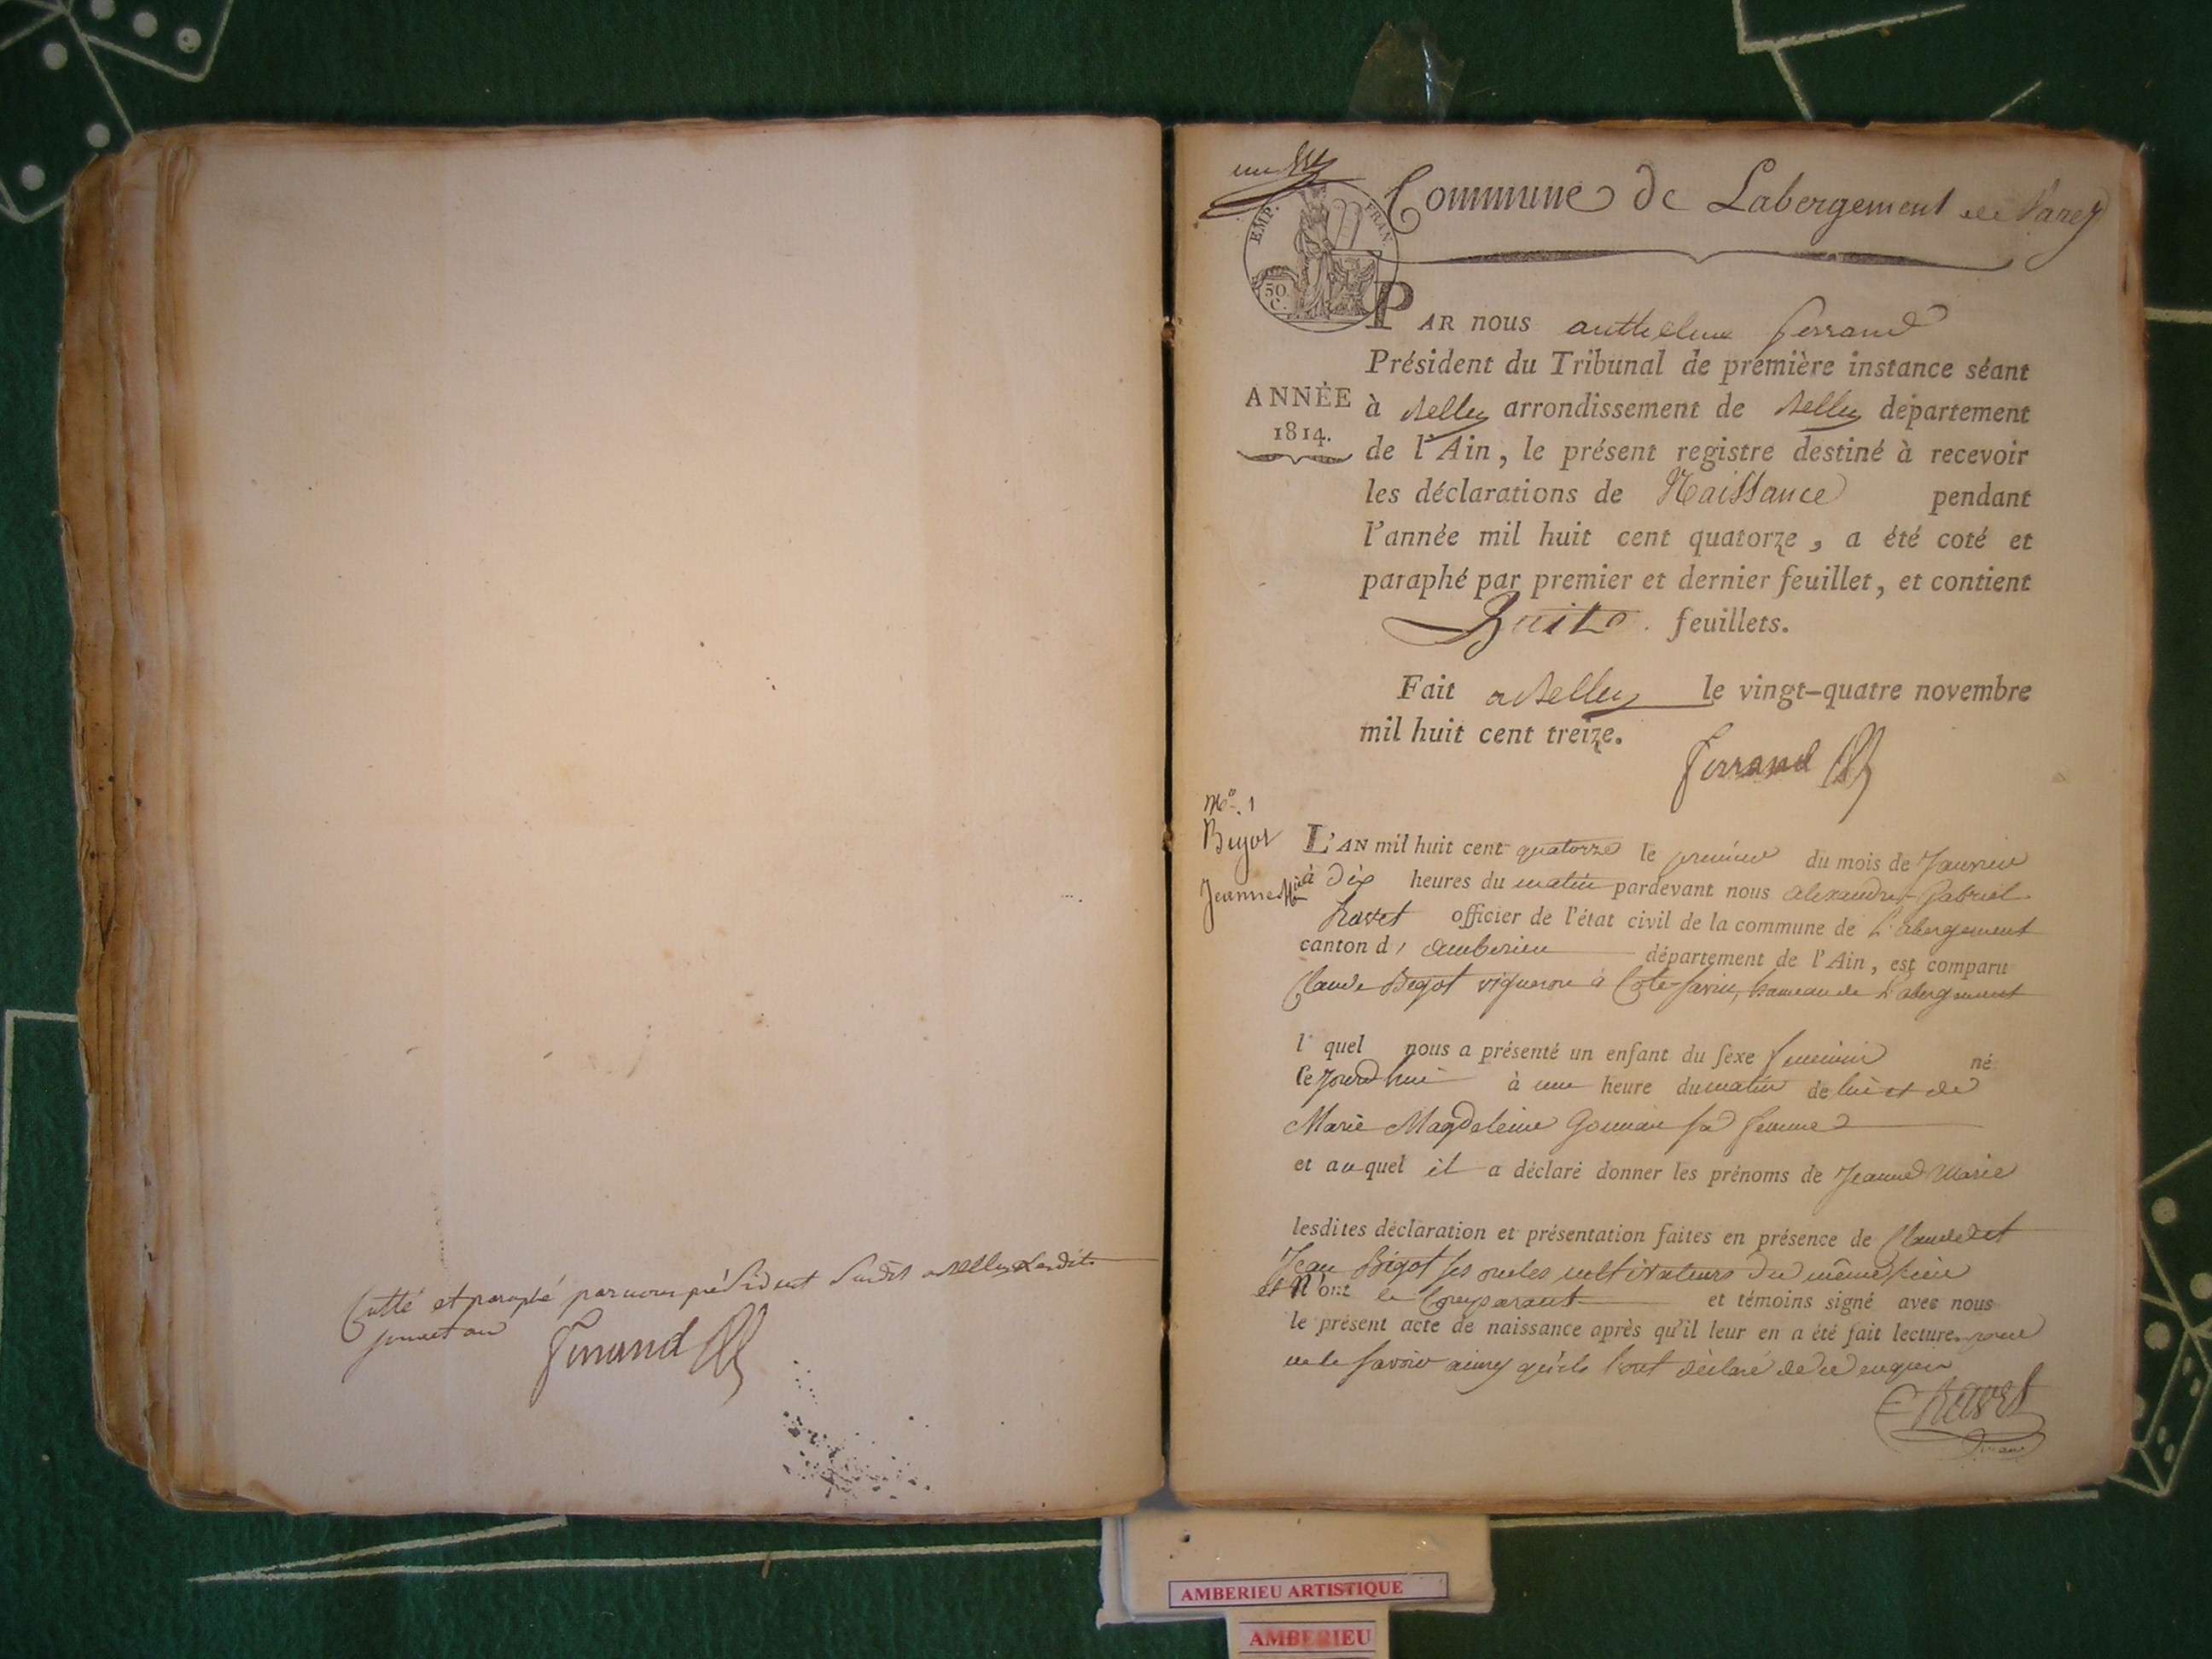 Cotté et paraphé par nous président susdit a Belley lesdits
jour et an
Ferrand
Commune de Labergement de Varey
EMP. FRAN.
50 C.
PAR nous anthelme ferrand
Président du Tribunal de première instance séant
ANNÉE
1814.
à Belley arrondissement de Belley département
de l'Ain, le présent registre destiné à recevoir
les déclarations de Naissance pendant
l'année mil huit cent quatorze, a été coté et
paraphé par premier et dernier feuillet, et contient
huit feuillets.
Fait a Belley le vingt-quatre novembre
mil huit cent treize.
Ferrand
No. 1
Bigot
Jeanne Mie
L'AN mil huit cent quatorze le premier du mois de Janvier
à dix heures du matin pardevant nous alexandre Gabriel
Ravet officier de l'état civil de la commune de L'abergement
canton d'amberieu département de l'Ain, est comparu
Claude Bigot vigneron à Cote-savin, hameau de L'abergement
lequel nous a présenté un enfant du sexe feminin né
Cejourd'hui à une heure du matin de lui et de
Marie Magdeleine sa femme
et auquel il a déclaré donner les prénoms de Jeanne Marie
lesdites déclaration et présentation faites en présence de Claude et
Jean Bigot ses oncles cultivateurs du même lieu
et N'ont le Comparant et témoins signé avec nous
le présent acte de naissance après qu'il leur en a été fait lecture pour
ne le savoir ainsy qu'ils l'ont déclaré de ce enquis
Ravet
AMBERIEU ARTISTIQUE
AMBERIEU